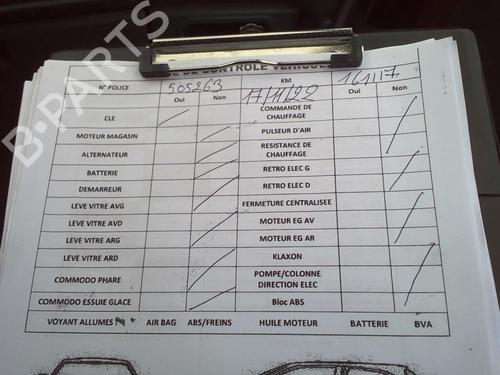 DE CONTRÔLE VEHICULE
N° POLICE 505263 KM 161117
Oui Non 17/11/22 Oui Non
CLE COMMANDE DE CHAUFFAGE
MOTEUR MAGASIN PULSEUR D'AIR
ALTERNATEUR RESISTANCE DE CHAUFFAGE
BATTERIE RETRO ELEC G
DEMARREUR RETRO ELEC D
LEVE VITRE AVG FERMETURE CENTRALISEE
LEVE VITRE AVD MOTEUR EG AV
LEVE VITRE ARG MOTEUR EG AR
LEVE VITRE ARD KLAXON
COMMODO PHARE POMPE/COLONNE DIRECTION ELEC
COMMODO ESSUIE GLACE Bloc ABS
VOYANT ALLUMES AIR BAG ABS/FREINS HUILE MOTEUR BATTERIE BVA
B-PARTS